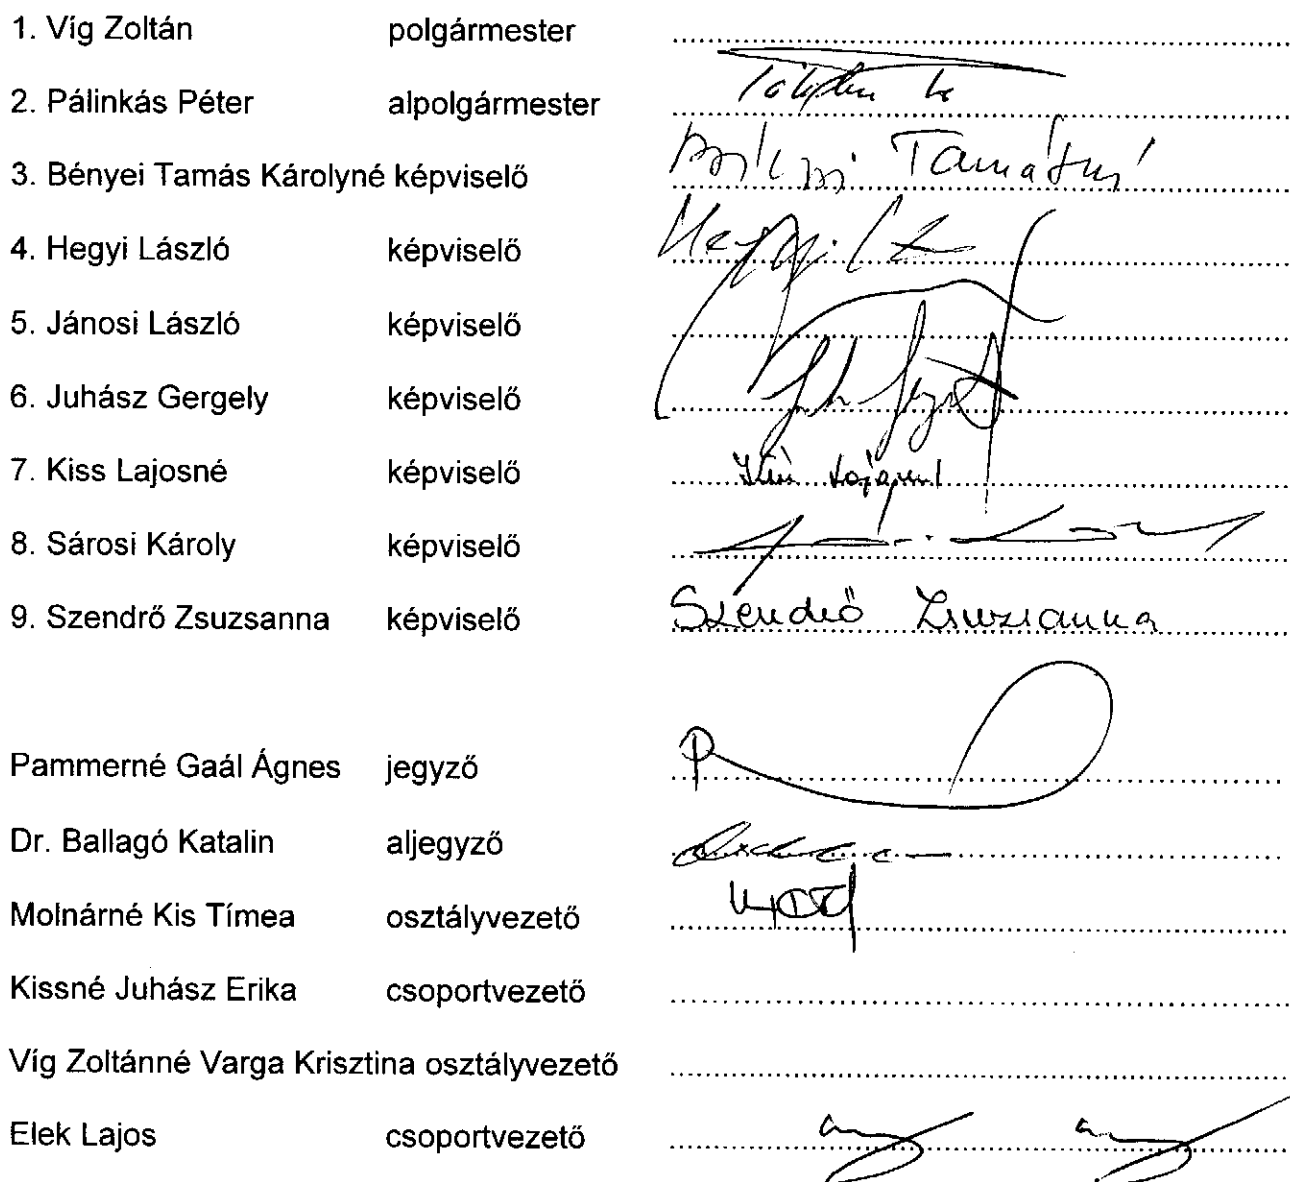 1. Víg Zoltán polgármester
2. Pálinkás Péter alpolgármester
3. Bényei Tamás Károlyné képviselő Tamásné
4. Hegyi László képviselő Hegyi L
5. Jánosi László képviselő
6. Juhász Gergely képviselő
7. Kiss Lajosné képviselő Kiss Lajosné
8. Sárosi Károly képviselő
9. Szendrő Zsuzsanna képviselő Szendrő Zsuzsanna
Pammerné Gaál Ágnes jegyző P
Dr. Ballagó Katalin aljegyző
Molnárné Kis Tímea osztályvezető
Kissné Juhász Erika csoportvezető
Víg Zoltánné Varga Krisztina osztályvezető
Elek Lajos csoportvezető